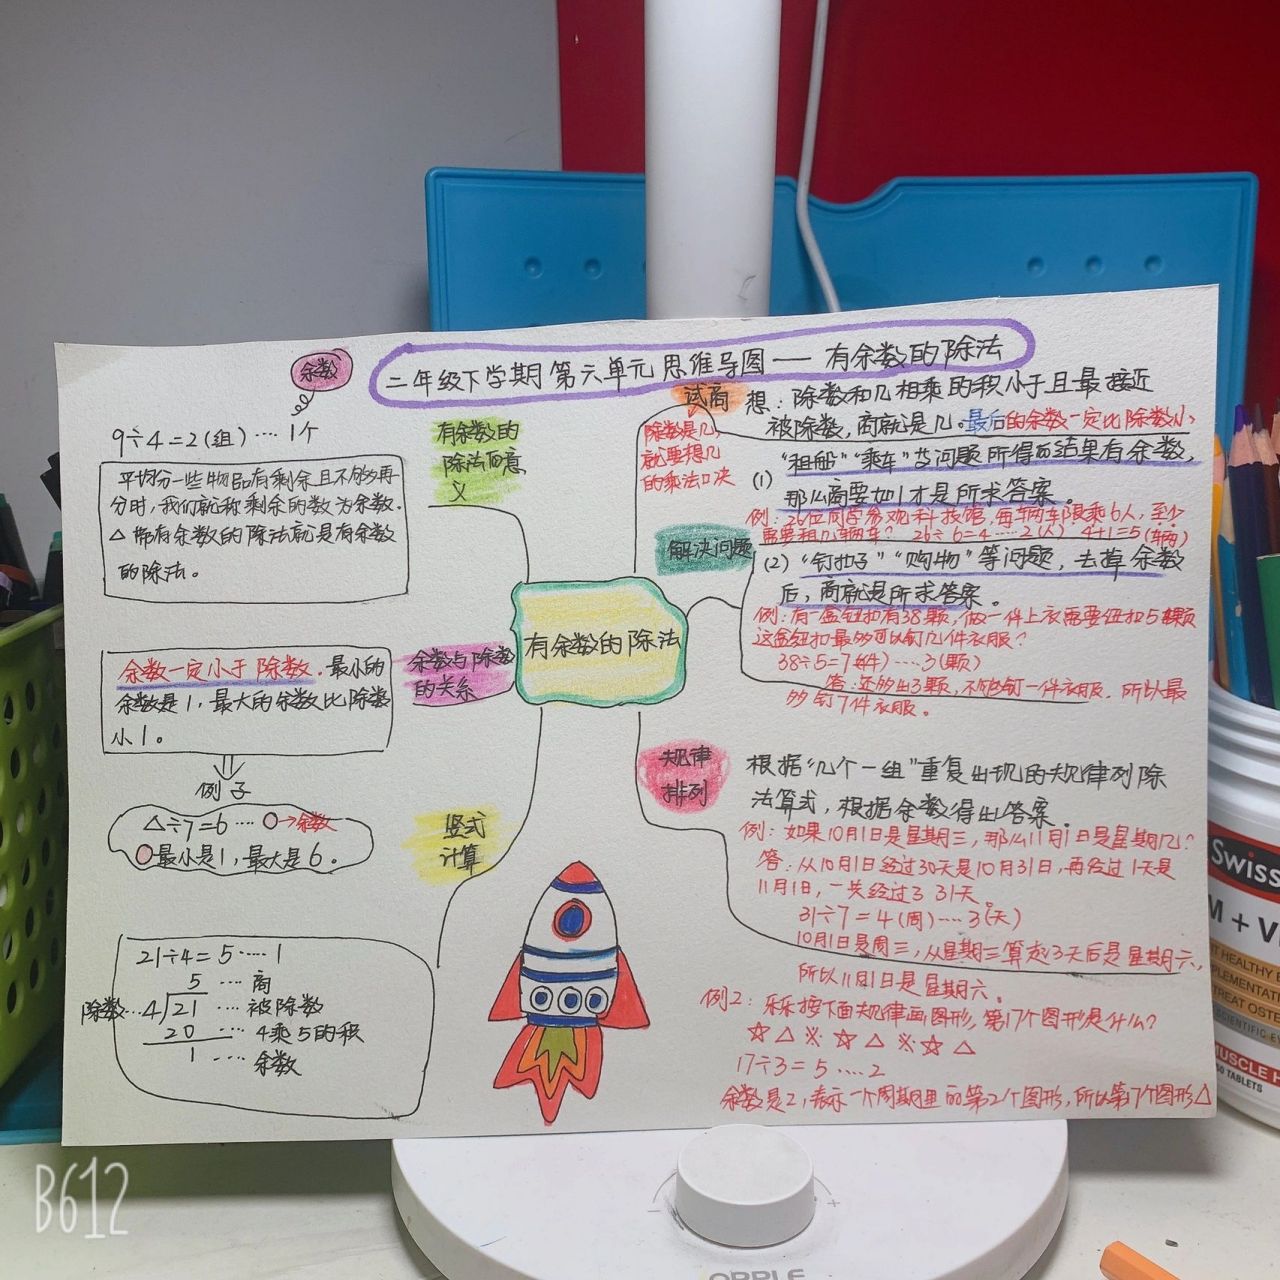 二年级下学期第六单元思维导图——有余数的除法
余数
9÷4=2(组)····1个
平均分一些物品有剩余且不够再
分时，我们就称剩余的数为余数.
△带有余数的除法就是有余数
的除法。
有余数的
除法的意
义
余数一定小于除数.最小的
余数是1,最大的余数比除数
小1。
余数与除数
的关系
例子
△÷7=6····○→余数
○最小是1,最大是6.
竖式
计算
21÷4=5·····1
5···商
除数···4 21···被除数
20····4乘5的积
1····
余数
有余数的除法
试商
想：除数和几相乘的积小于且最接近
被除数,商就是几。最后的余数一定比除数小,
除数是几,
就要想几
的乘法口决
解决问题
(1)“租船”“乘车”类问题所得的结果有余数,
那么商要加1才是所求答案。
例：26位同学参观科技馆,每辆车限乘6人,至少
需要租几辆车？ 26÷6=4····2(人) 4+1=5(辆)
(2)“钉扣子”“购物”等问题,去掉余数
后,商就是所求答案。
例：有一盒钮扣有38颗,做一件上衣需要纽扣5颗
这盒钮扣最多可以钉几件衣服？
38÷5=7(件)····3(颗)
答:还多出3颗,不够钉一件衣服.所以最
多钉7件衣服。
规律
排列
根据“几个一组”重复出现的规律列除
法算式,根据余数得出答案。
例：如果10月1日是星期三,那么11月1日是星期几?
答:从10月1日经过30天是10月31日,再经过1天是
11月1日,一共经过了31天。
31÷7=4(周)····3(天)
10月1日是周三,从星期三算起3天后是星期六,
所以11月1日是星期六。
例2：乐乐按下面规律画图形,第17个图形是什么?
☆△※☆△※☆△
17÷3=5····2
余数是2,表示一个周期里的第2个图形,所以第17个图形△
Swiss
M + V
MUSCLE H
TABLETS
OPPLE
B612